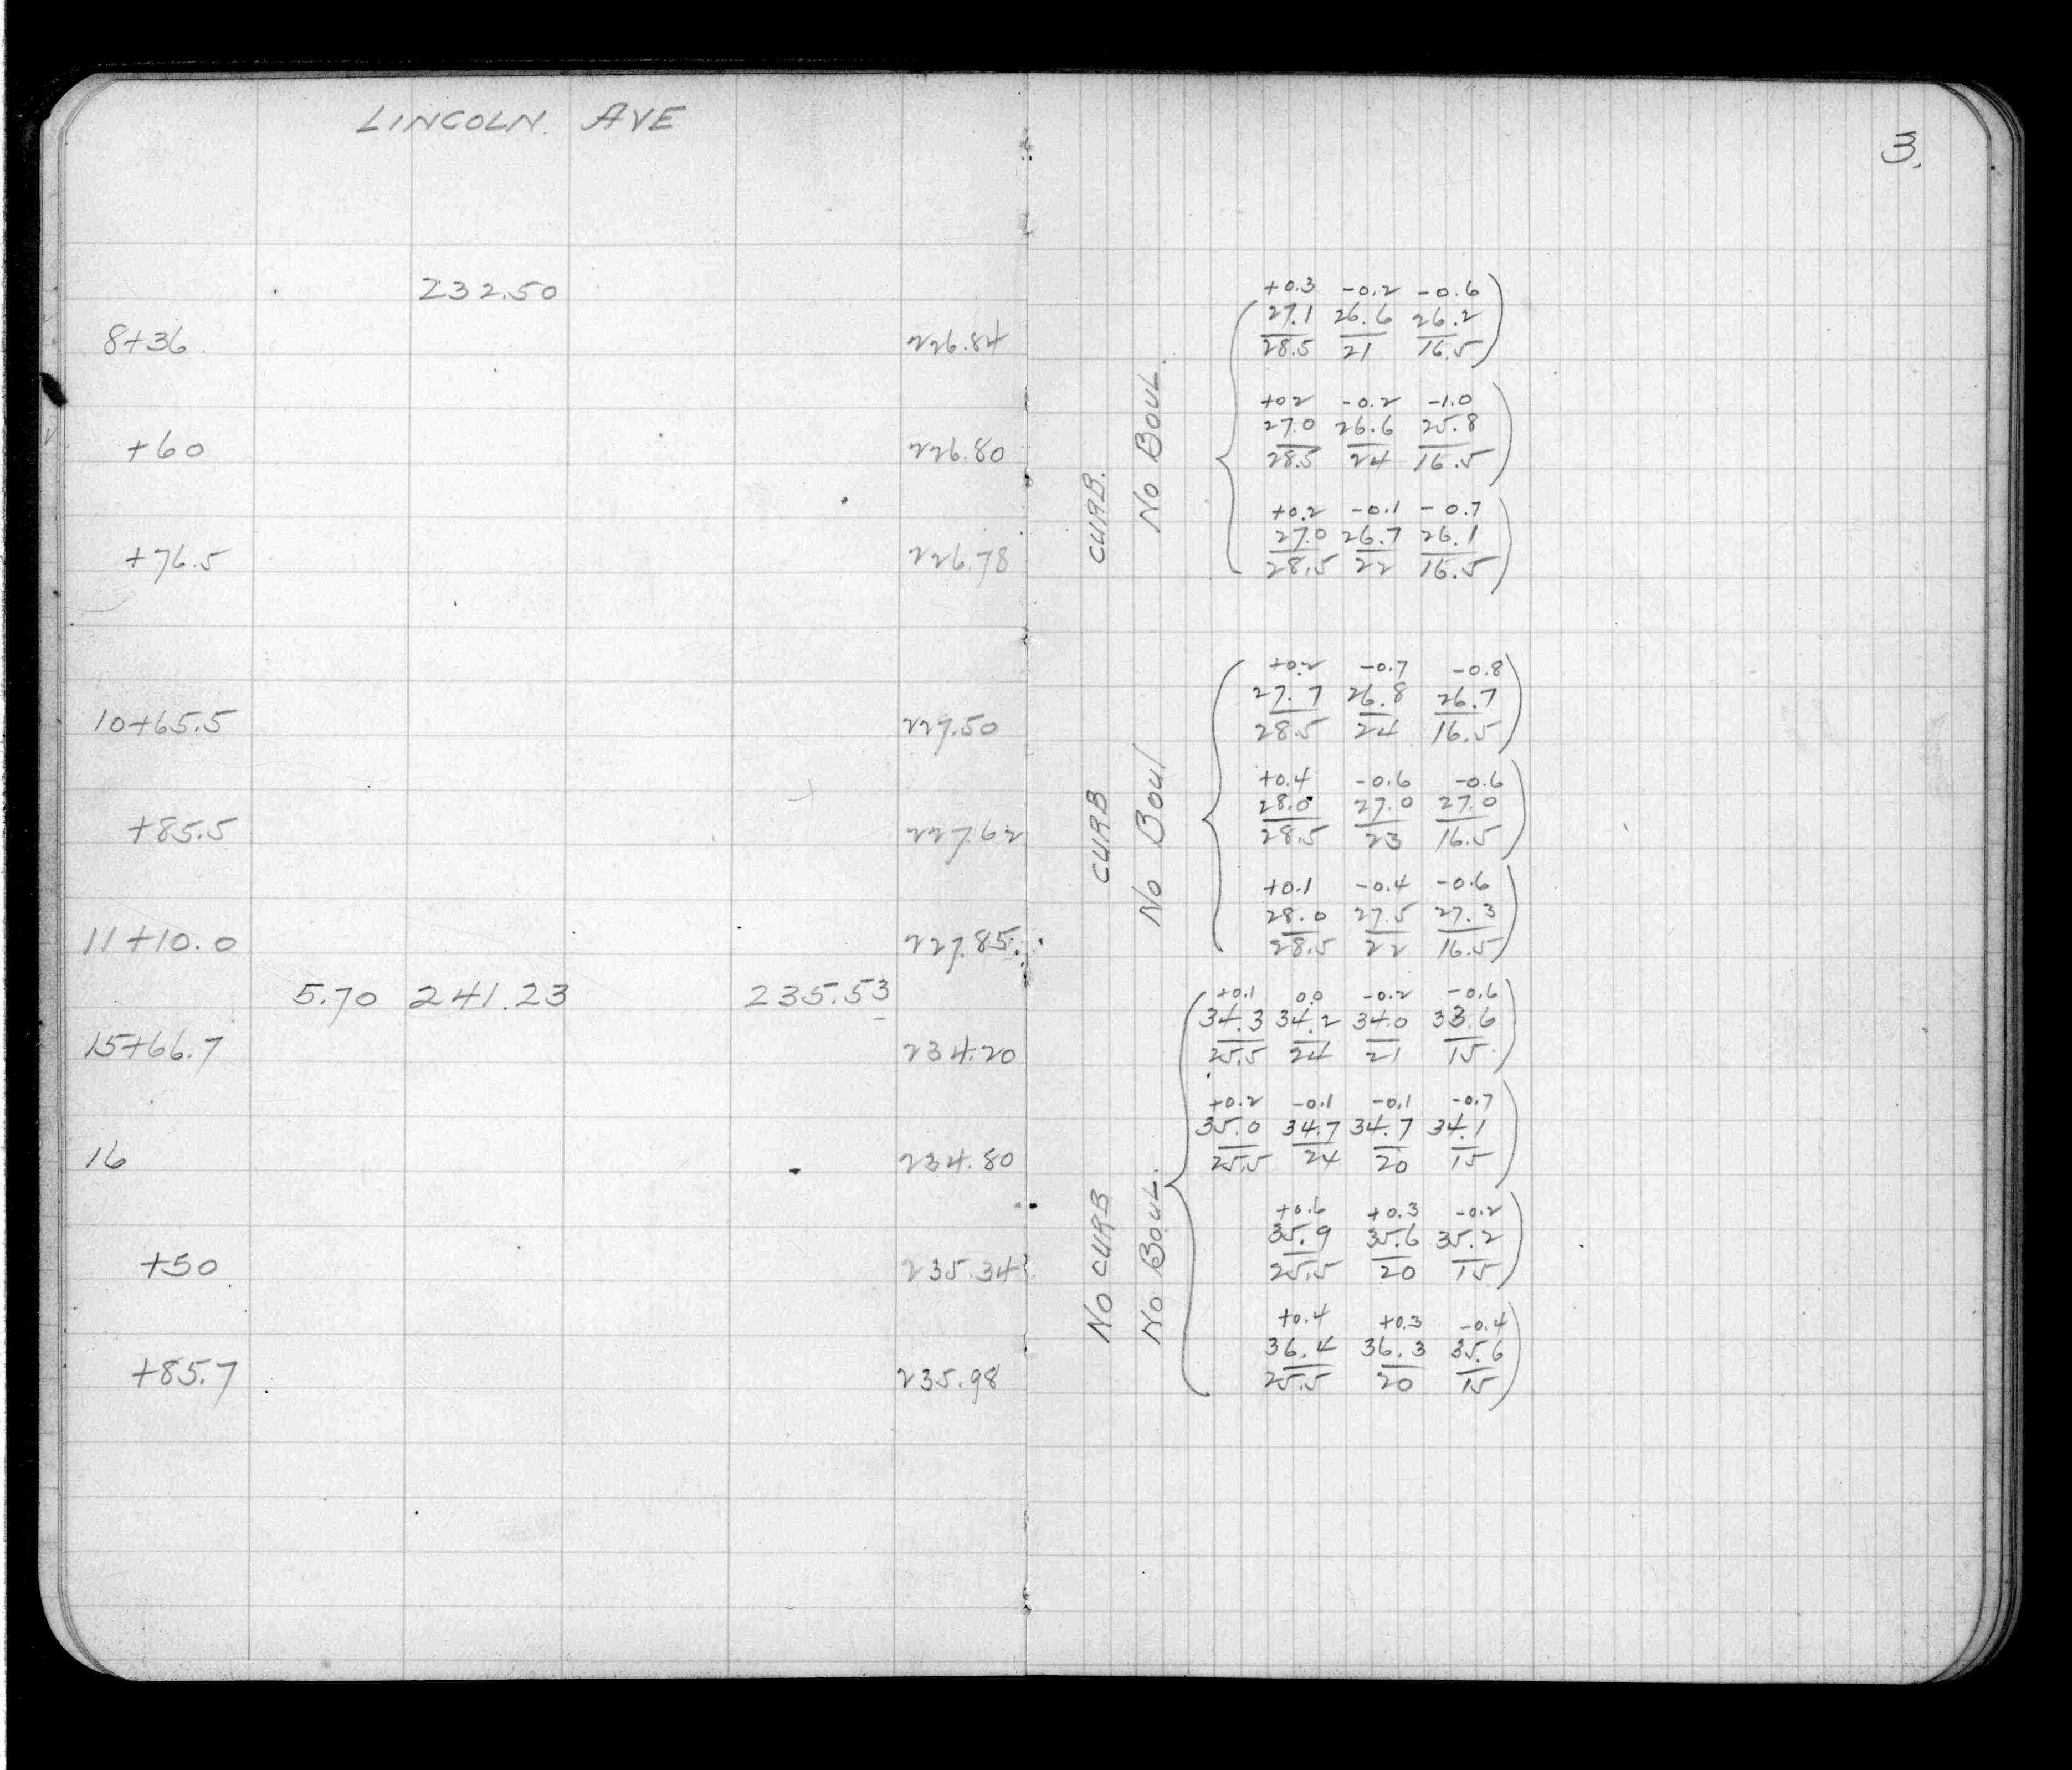 LINCOLN AVE
3.
232.50
+0.3 -0.2 -0.6
27.1 26.6 26.2
8+36 226.84
28.5 21 16.5
+0.2 -0.2 -1.0
27.0 26.6 25.8
+60 226.80
28.5 24 16.5
CURB.
No BOUL.
+0.2 -0.1 -0.7
27.0 26.7 26.1
+76.5 226.78
28.5 22 16.5
+0.2 -0.7 -0.8
27.7 26.8 26.7
10+65.5 227.50
28.5 24 16.5
+0.4 -0.6 -0.6
28.0 27.0 27.0
+85.5 227.62
28.5 23 16.5
CURB
No Boul
+0.1 -0.4 -0.6
28.0 27.5 27.3
11+10.0 227.85
28.5 22 16.5
5.70 241.23 235.53
+0.1 0.0 -0.2 -0.6
34.3 34.2 34.0 33.6
15+66.7 234.20
25.5 24 21 15
+0.2 -0.1 -0.1 -0.7
35.0 34.7 34.7 34.1
16 234.80
25.5 24 20 15
NO CURB
No BOUL.
+0.6 +0.3 -0.2
35.9 35.6 35.2
+50 235.34
25.5 20 15
+0.4 +0.3 -0.4
36.4 36.3 35.6
+85.7 235.98
25.5 20 15